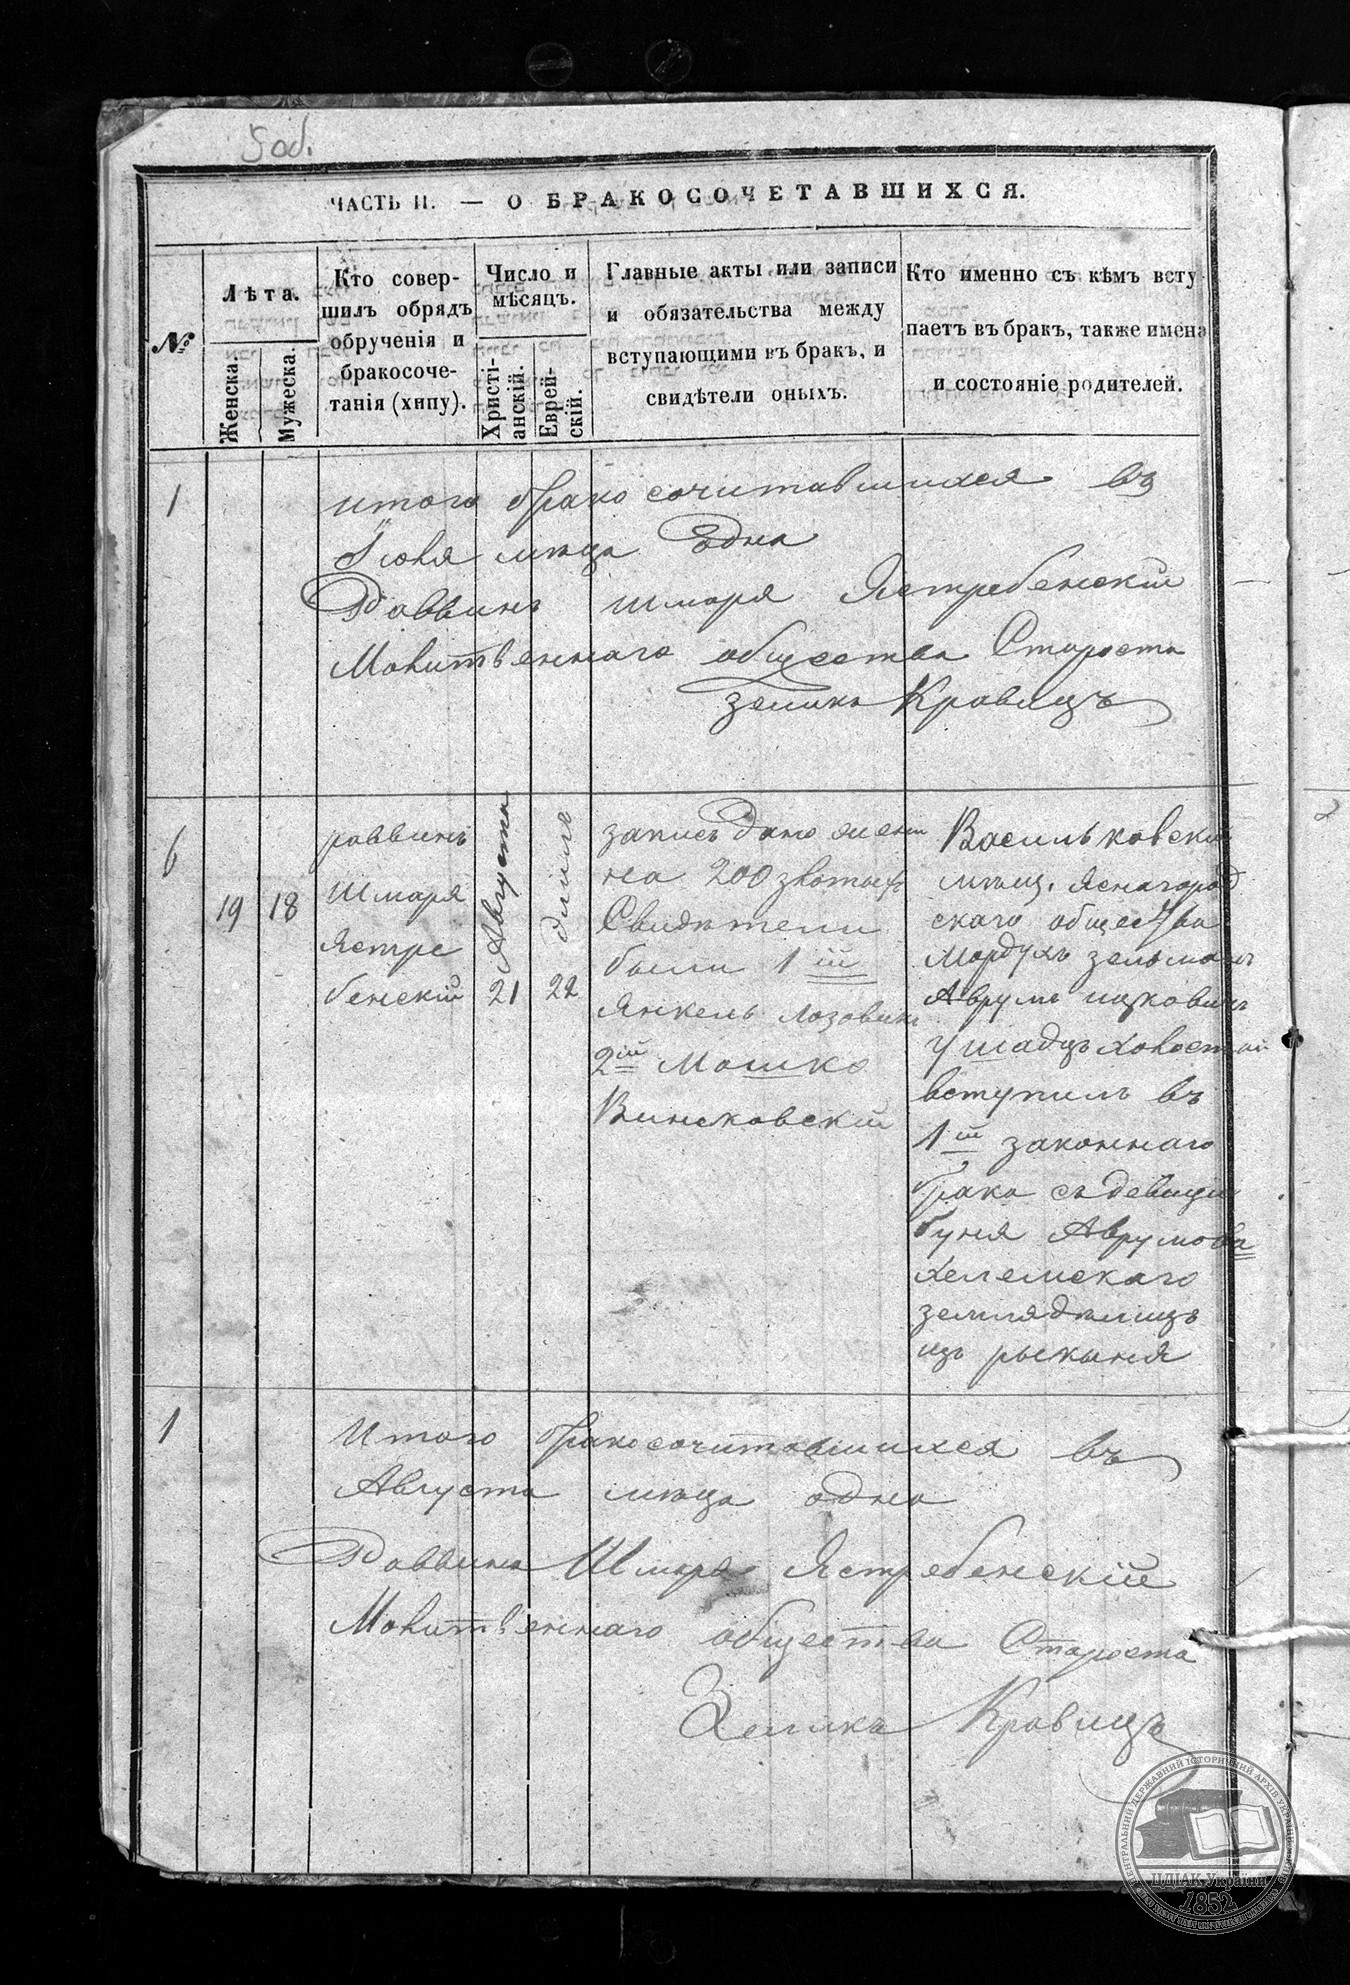 5 об.
ЧАСТЬ II. — О БРАКОСОЧЕТАВШИХСЯ.
№
Лѣта.
Женска.
Мужеска.
Кто совер-
шилъ обрядъ
обрученія и
бракосоче-
танія (хипу).
Число и
мѣсяцъ.
Христі-
анскій.
Еврей-
скій.
Главные акты или записи
и обязательства между
вступающими въ бракъ, и
свидѣтели оныхъ.
Кто именно съ кѣмъ всту-
паетъ въ бракъ, также имена
и состояніе родителей.
1
итого бракосочитавшихся въ
Іюня мѣца Одна
Раввинъ Шмаря Ястребенскій
Молитвеннаго общества Староста
Зеликъ Кравецъ
6
19
18
раввинъ
Шмаря
Ястре
бенскій
Августа
21
22
запись дано
на 200 злотыхъ
Свидѣтели
были 1ій
Янкель Лозовикъ
2ій Мошко
Винсковскій
Васильковскій
мѣщ. Ясnагород
скаго общества
Мордухъ Зельманъ
Аврумъ ицковичъ
холостой
вступилъ въ
1ій законнаго
брака съ девицей
буня Аврумова
земляделецъ
изъ
1
Итого бракосочитавшихся въ
Августа мѣца одна
Раввинъ Шмаря Ястребенскій
Молитвеннаго общества Староста
Зеликъ Кравецъ
ЦЕНТРАЛЬНИЙ ДЕРЖАВНИЙ ІСТОРИЧНИЙ АРХІВ УКРАЇНИ
ЦДІАК України
1852